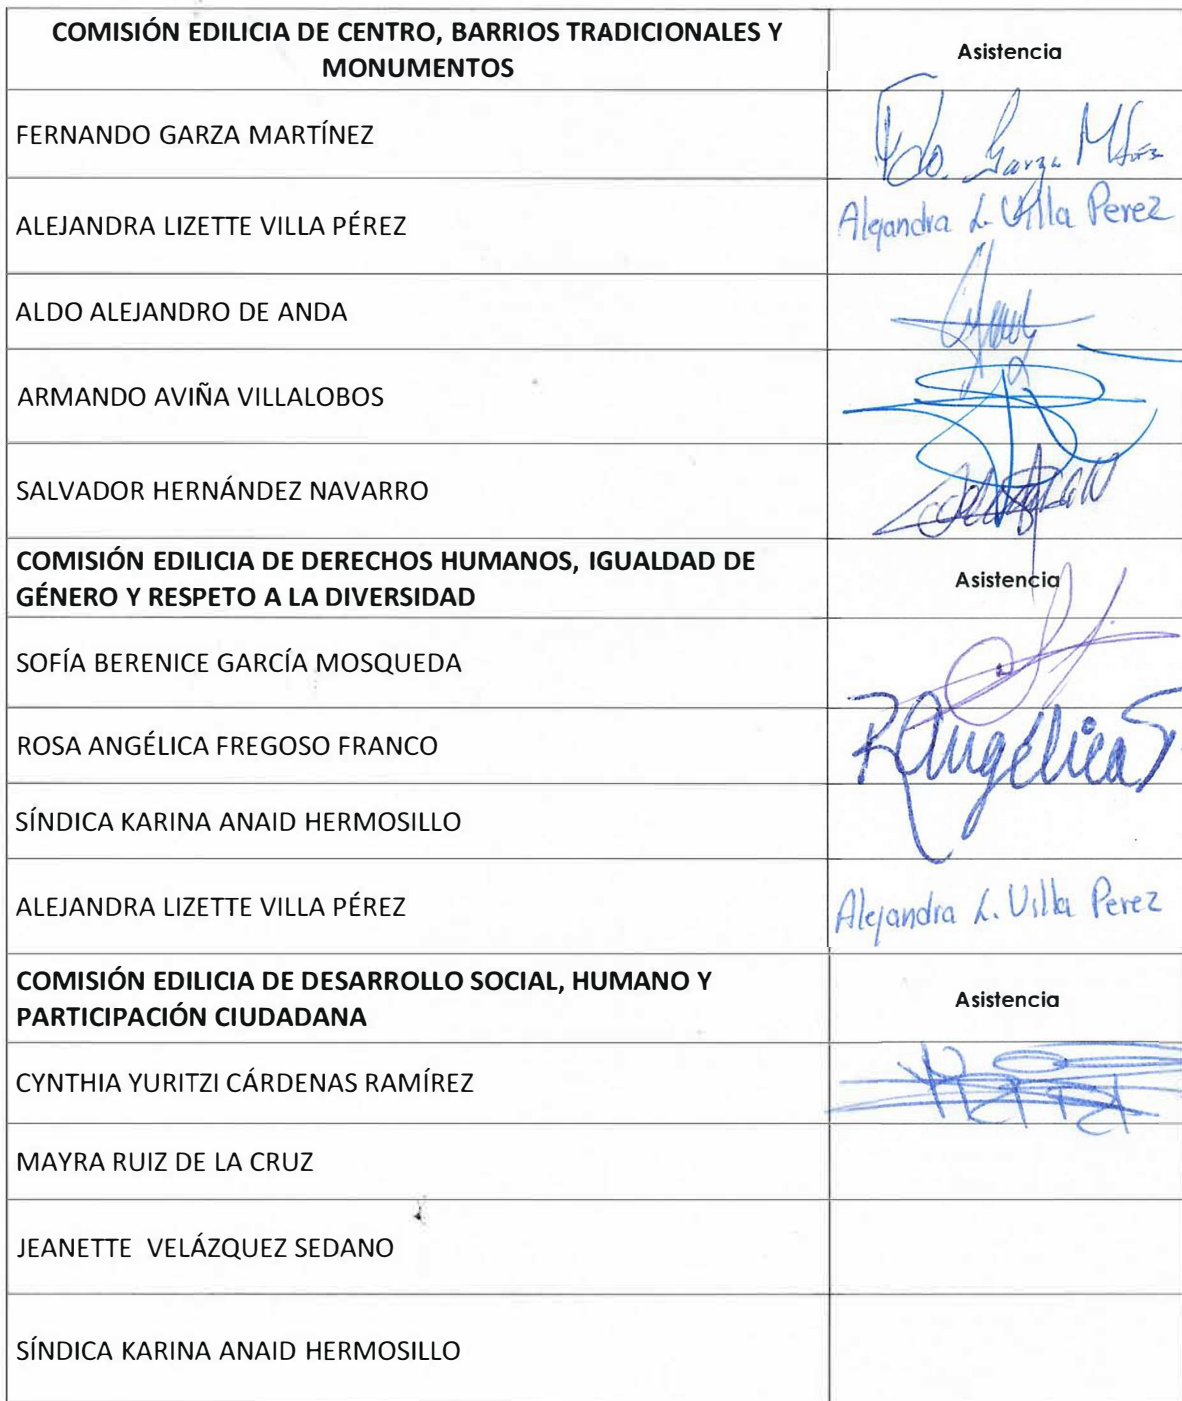 COMISIÓN EDILICIA DE CENTRO, BARRIOS TRADICIONALES Y
MONUMENTOS
Asistencia
FERNANDO GARZA MARTÍNEZ
Fdo. Garza
ALEJANDRA LIZETTE VILLA PÉREZ
Alejandra L. Villa Perez
ALDO ALEJANDRO DE ANDA
ARMANDO AVIÑA VILLALOBOS
SALVADOR HERNÁNDEZ NAVARRO
COMISIÓN EDILICIA DE DERECHOS HUMANOS, IGUALDAD DE
GÉNERO Y RESPETO A LA DIVERSIDAD
Asistencia
SOFÍA BERENICE GARCÍA MOSQUEDA
ROSA ANGÉLICA FREGOSO FRANCO
RAngélica
SÍNDICA KARINA ANAID HERMOSILLO
ALEJANDRA LIZETTE VILLA PÉREZ
Alejandra L. Villa Perez
COMISIÓN EDILICIA DE DESARROLLO SOCIAL, HUMANO Y
PARTICIPACIÓN CIUDADANA
Asistencia
CYNTHIA YURITZI CÁRDENAS RAMÍREZ
MAYRA RUIZ DE LA CRUZ
JEANETTE VELÁZQUEZ SEDANO
SÍNDICA KARINA ANAID HERMOSILLO